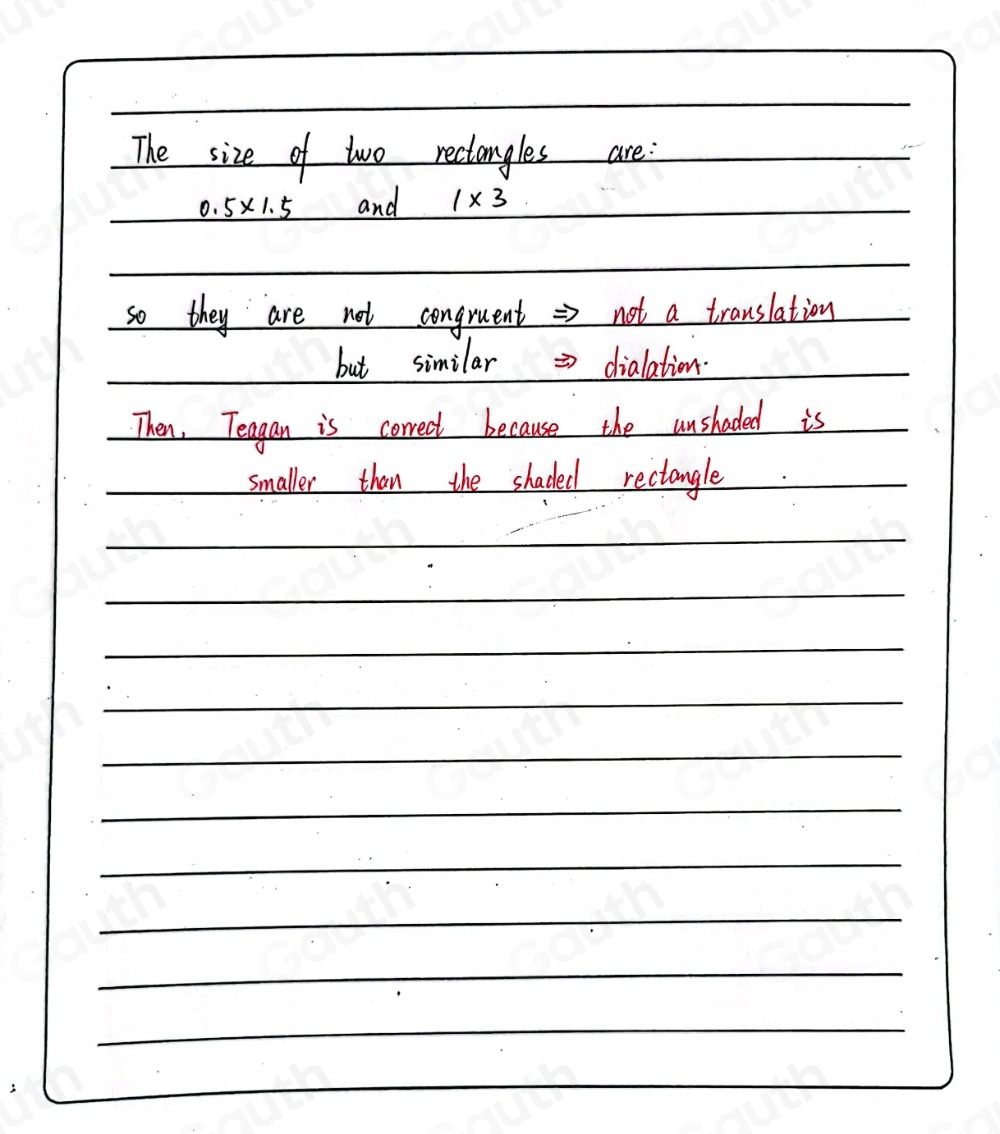 The size of two rectangles are:
0.5×1.5 and 1×3
so they are not congruent ⇒ not a translation
but similar ⇒ dialation.
Then, Teagan is correct because the unshaded is
smaller than the shaded rectangle.